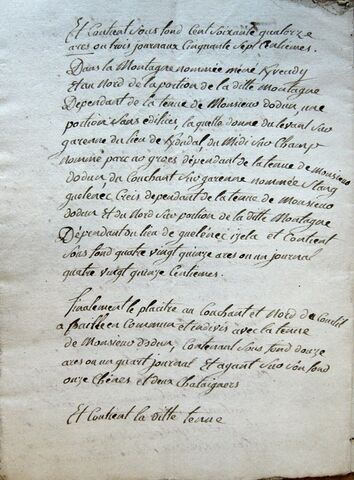 Et Contient Sous fond Cent Soixante quatorze
ares ou trois journaux Cinquante Sept Centiemes.
Dans la Montagne nommée méné
Et au Nord de la portion de la ditte Montagne
Dependant de la tenue de Monsieur dodun, une
portion Sans edifices, laquelle donne du levant Sur
garenne du lieu de du Midi Sur Champ
nommé parc an groes dépendant de la tenue de monsieur
dodun, du Couchant Sur garenne nommée Stang
quelenec Creis dependant de la tenue de Monsieur
dodun et du Nord Sur portion de la ditte Montagne
Dépendant du lieu de quelenec izela et Contient
Sous fond quatre vingt quinze ares ou un journal
quatre vingt quinze Centiemes.
finalement le placitre au Couchant et Nord de
a paille en Commun et indivis avec la tenue
de Monsieur dodun, Contenant Sous fond douze
ares ou un quart journal Et ayant Sur Son fond
onze Chênes et deux Chataigners
Et Contient la ditte tenue